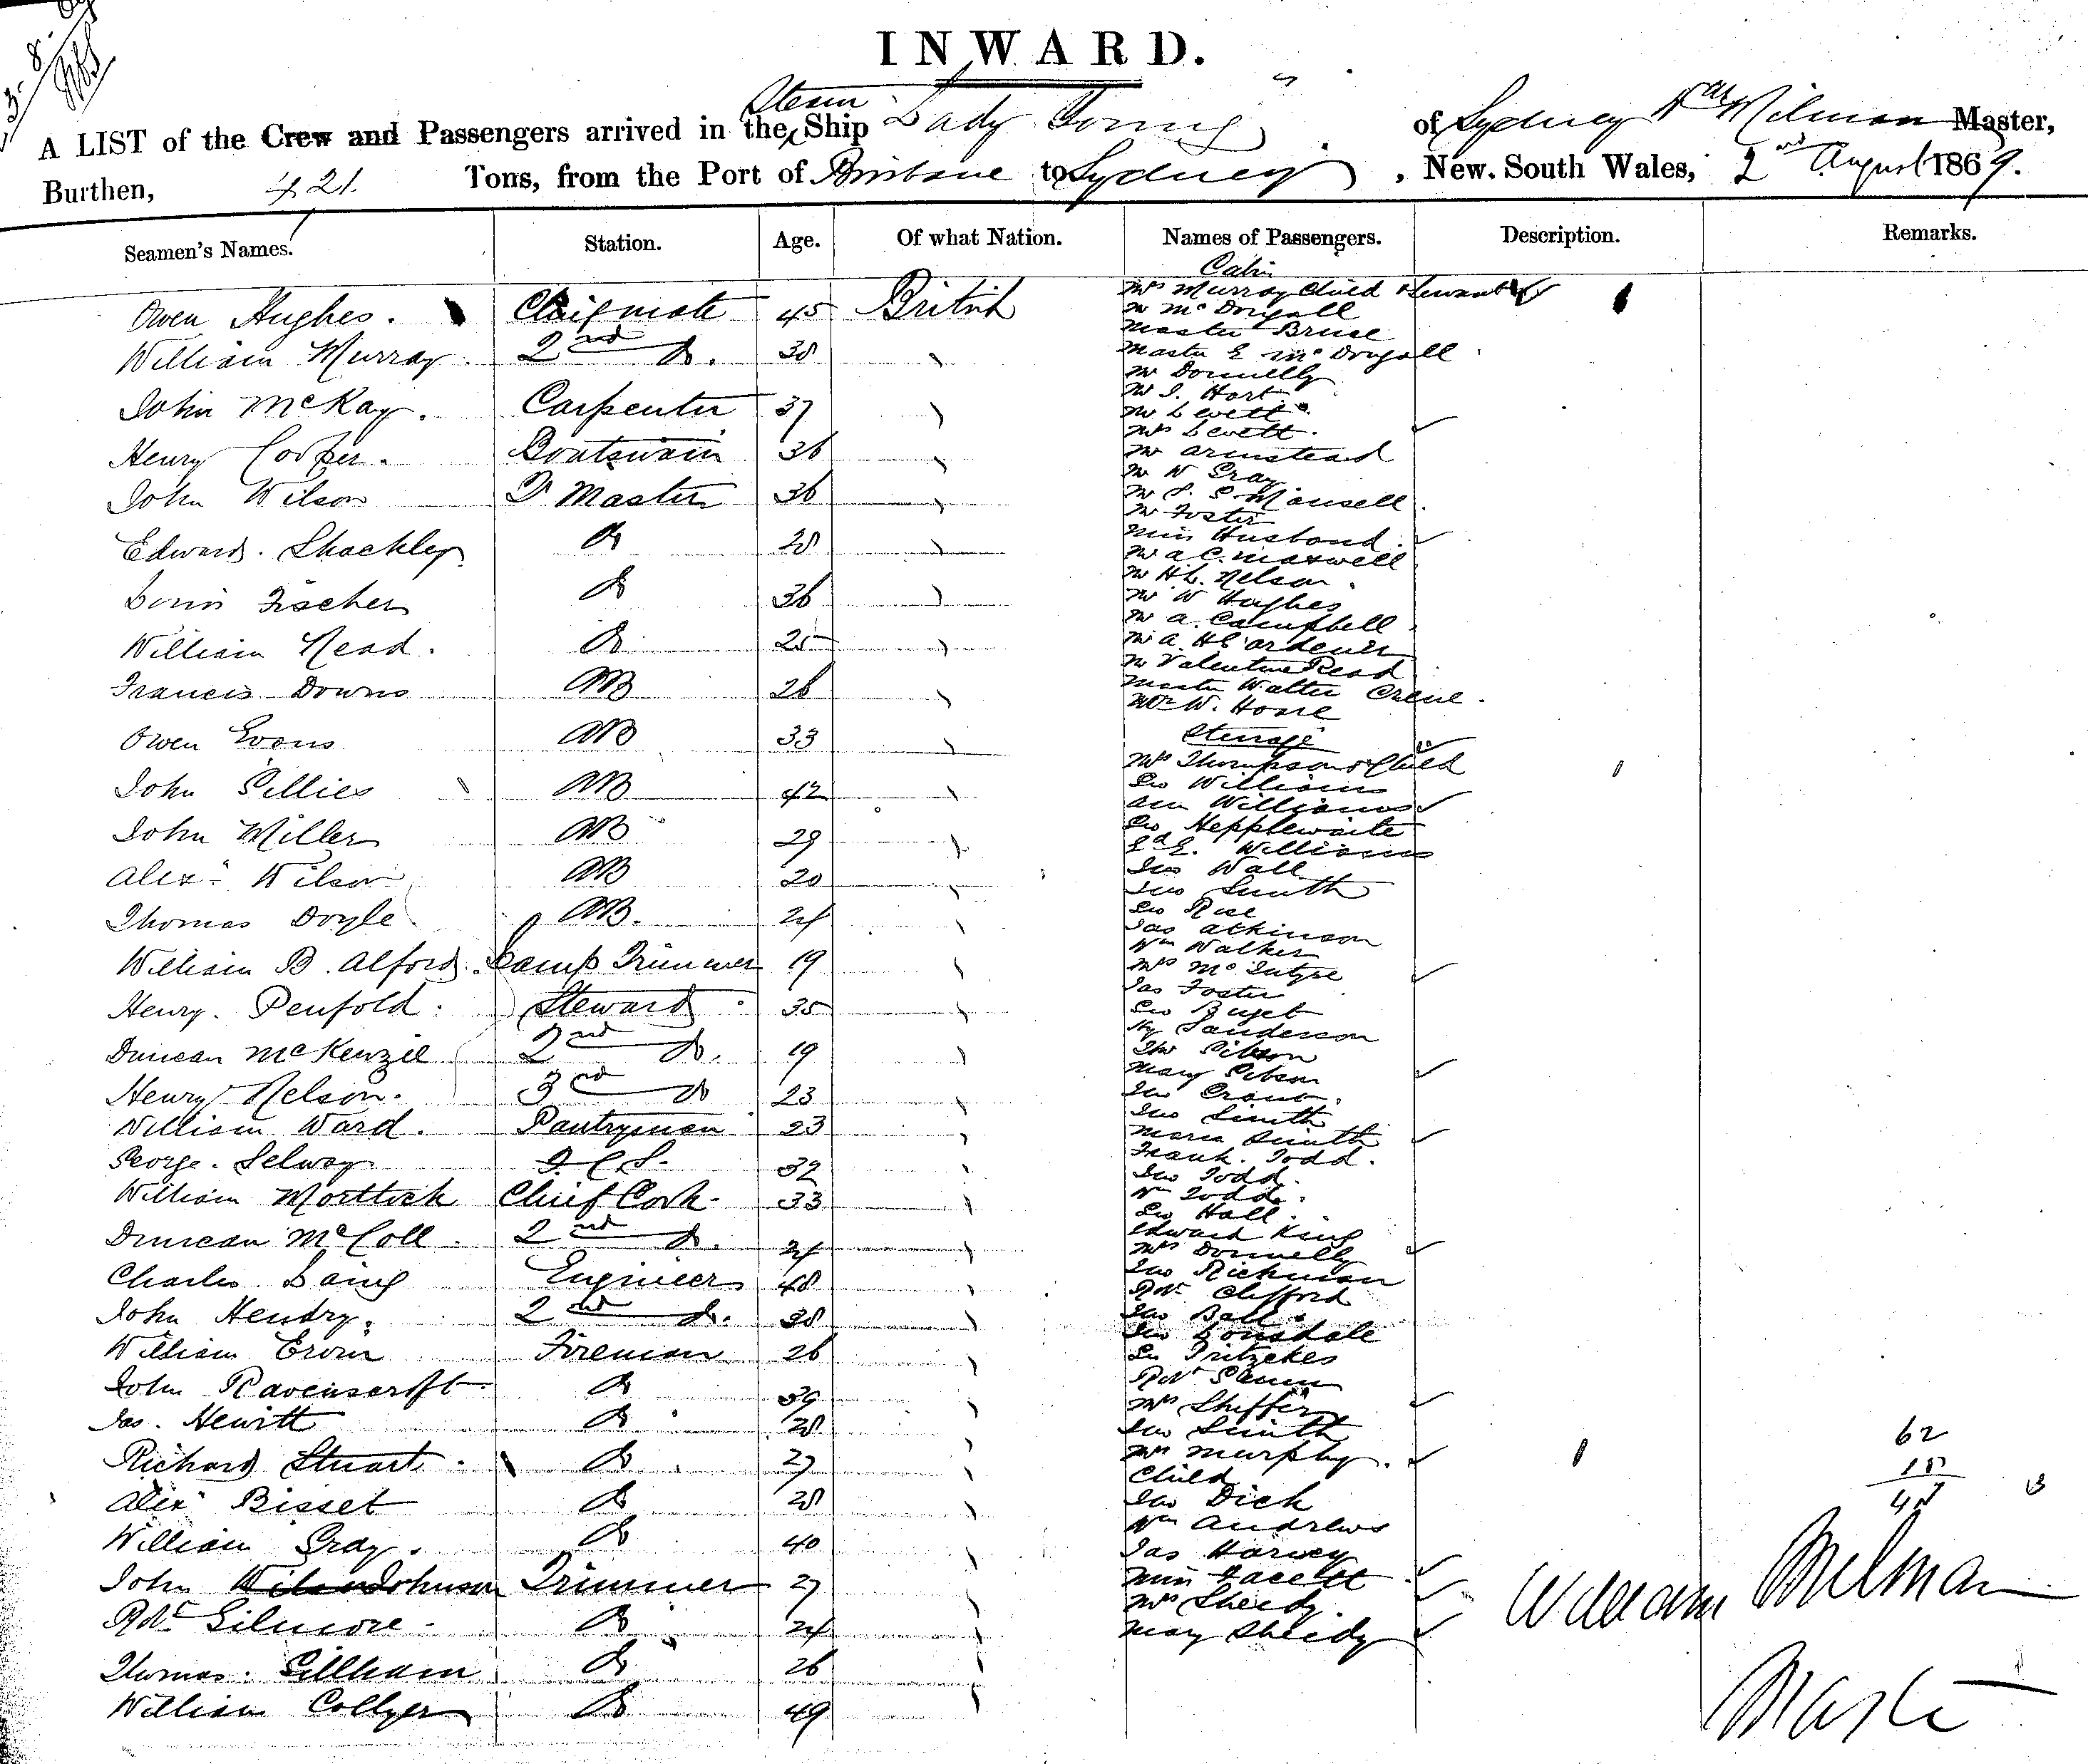 INWARD.
A LIST of the Crew and Passengers arrived in the Steam Ship Lady Young of Sydney Wm Milman Master,
Burthen, 421 Tons, from the Port of Brisbane to Sydney, New South Wales, 2nd August 1869.
Seamen's Names. Station. Age. Of what Nation. Names of Passengers. Description. Remarks.
Owen Hughes. Chief mate 45 British
William Murray 2nd Do. 38
John McKay. Carpenter 37
Henry Cooper. Boatswain 36
John Wilson Qr Master 36
Edward Shackley Do 28
Fischer Do 36
William Read. Do 25
Francis Downs AB 26
Owen Evans AB 33
John Gillies AB 42
John Miller AB 29
Alexr Wilson AB 20
Thomas Doyle AB. 24
William B. Alford Lamp Trimmer 19
Henry Penfold. Steward 35
Duncan McKenzie 2nd Do. 19
Henry Nelson. 3rd Do 23
William Ward. Pantryman 23
George Selway 32
William Mortlock Chief Cook 33
Duncan McColl 2nd Do. 24
Charles Laing Engineer 48
John Hendry. 2nd Do. 38
William Fireman 26
John Ravenscroft Do 39
Jas. Hewitt Do 28
Richard Stuart Do 27
Alexr Bisset Do 28
William Gray. Do 40
John Wilson Johnson Trimmer 27
Robt Gilmore Do 24
Thomas Gillham Do 26
William Collyer Do 49
Cabin
Mrs Murray Child & Servant
Mr McDougall
Master Bruce
Master E McDougall
Mr Donnelly
Mr J. Hart
Mr Levett
Mrs Levett
Mr Armstead
Mr W Gray
Mr Mansell
Mr Foster
Miss Husband
Mr A C. Maxwell
Mr H L. Nelson
Mr W Hughes
Mr A. Campbell
Mr A. H
Mr Valentine Read
Master Walter
Mr W. Hoare
Steerage
Mrs Thompson & Child
Geo Williams
Ann Williams
Geo Hepplewaite
Ed E. Williams
Jno Wall
Jno Smith
Geo Rice
Jas Atkinson
Wm Walker
Mrs McIntyre
Jas Foster
Geo
Hy Sanderson
Gibson
Mary Gibson
Jno
Jno Smith
Maria Smith
Frank Todd.
Jno Todd.
Wm Todd.
Geo Hall.
Edward King
Mrs Donnelly
Jno Richman
Robt Clifford
Jno Ball
Jno Lonsdale
Robt
Mrs
Jno Smith
Mrs Murphy.
Child
Jno Dick
Wm Andrews
Jas Harvey
Miss
Mrs Sheedy
May Sheedy
62
William Milman
Master